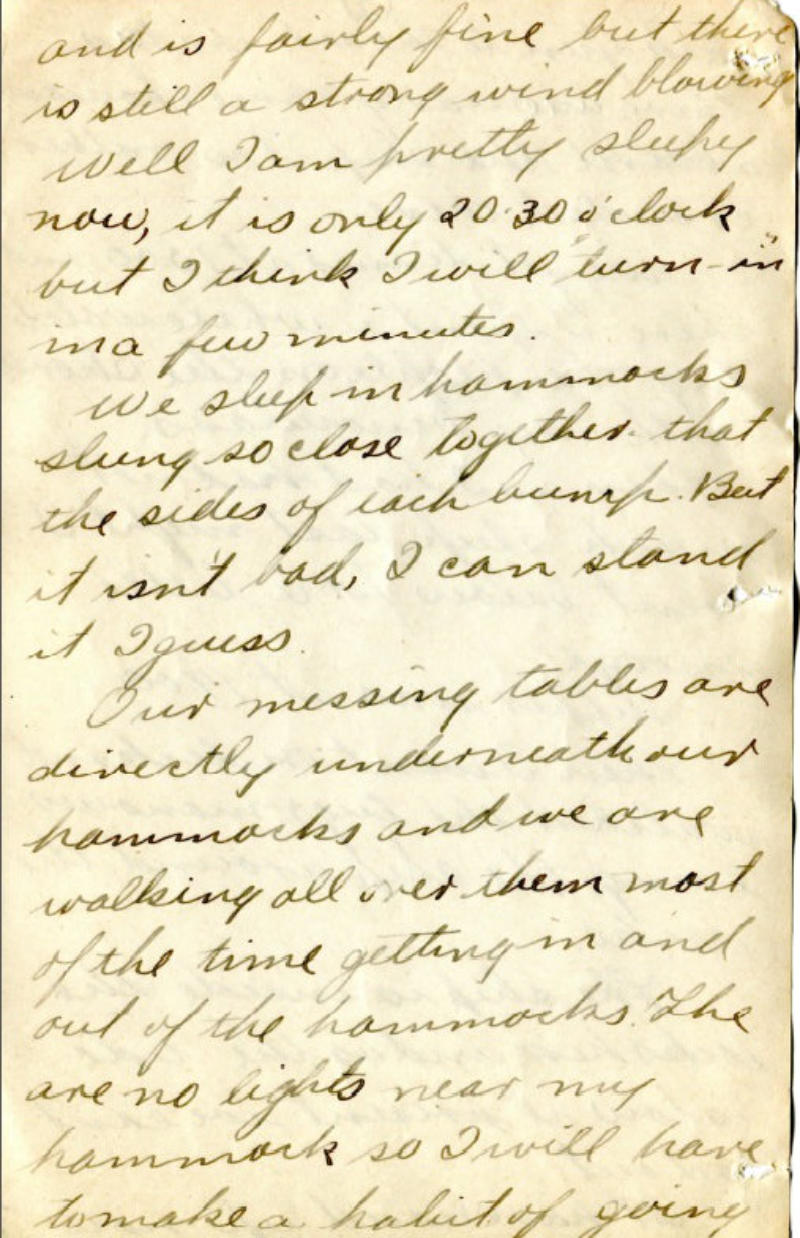 and is fairly fine but there
is still a strong wind blowing
well I am pretty sleepy
now, it is only 20.30 o'clock
but I think I will "turn-in"
in a few minutes.
We sleep in hammocks
slung so close together that
the sides of each bump. But
it isn't bad, I can stand
it I guess.
Our messing tables are
directly underneath our
hammocks and we are
walking all over them most
of the time getting in and
out of the hammocks. The
are no lights near my
hammock so I will have
to make a habit of going